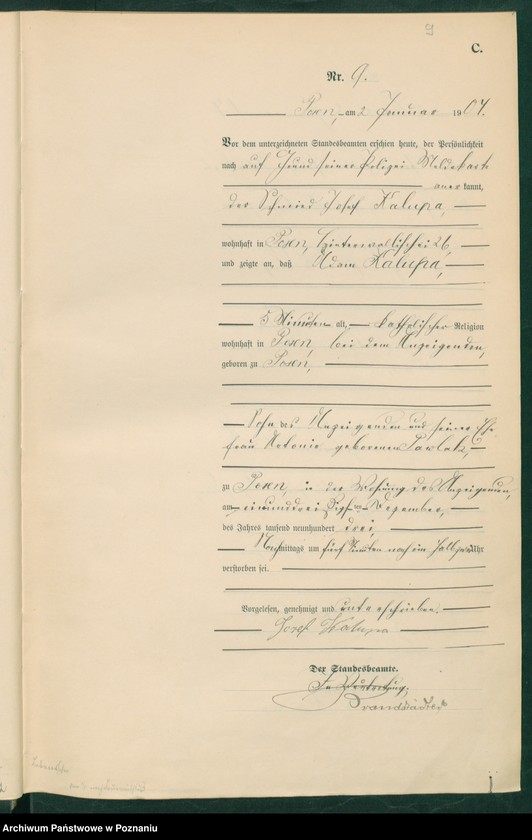 9
C.
Nr. 9.
Posen, am 2 Januar 1904.
Vor dem unterzeichneten Standesbeamten erschien heute, der Persönlichkeit
nach auf Grund seiner Polizei Meldekarte
anerkannt,
der Schmied Josef Kalupa,
wohnhaft in Posen, 26,
und zeigte an, daß Adam Kalupa,
5 Minuten alt, katholischer Religion
wohnhaft in Posen, bei dem Anzeigenden,
geboren zu Posen,
Sohn des Anzeigenden und seiner Ehe-
frau Antonie geborenen
zu Posen, in der Wohnung des Anzeigenden,
am einunddreißigsten Dezember,
des Jahres tausend neunhundert drei,
Nachmittags um fünf Minuten nach ein halb zwei Uhr
verstorben sei.
Vorgelesen, genehmigt und unterschrieben.
Josef Kalupa
Der Standesbeamte.
In Vertretung,
Brandstädter
Archiwum Państwowe w Poznaniu